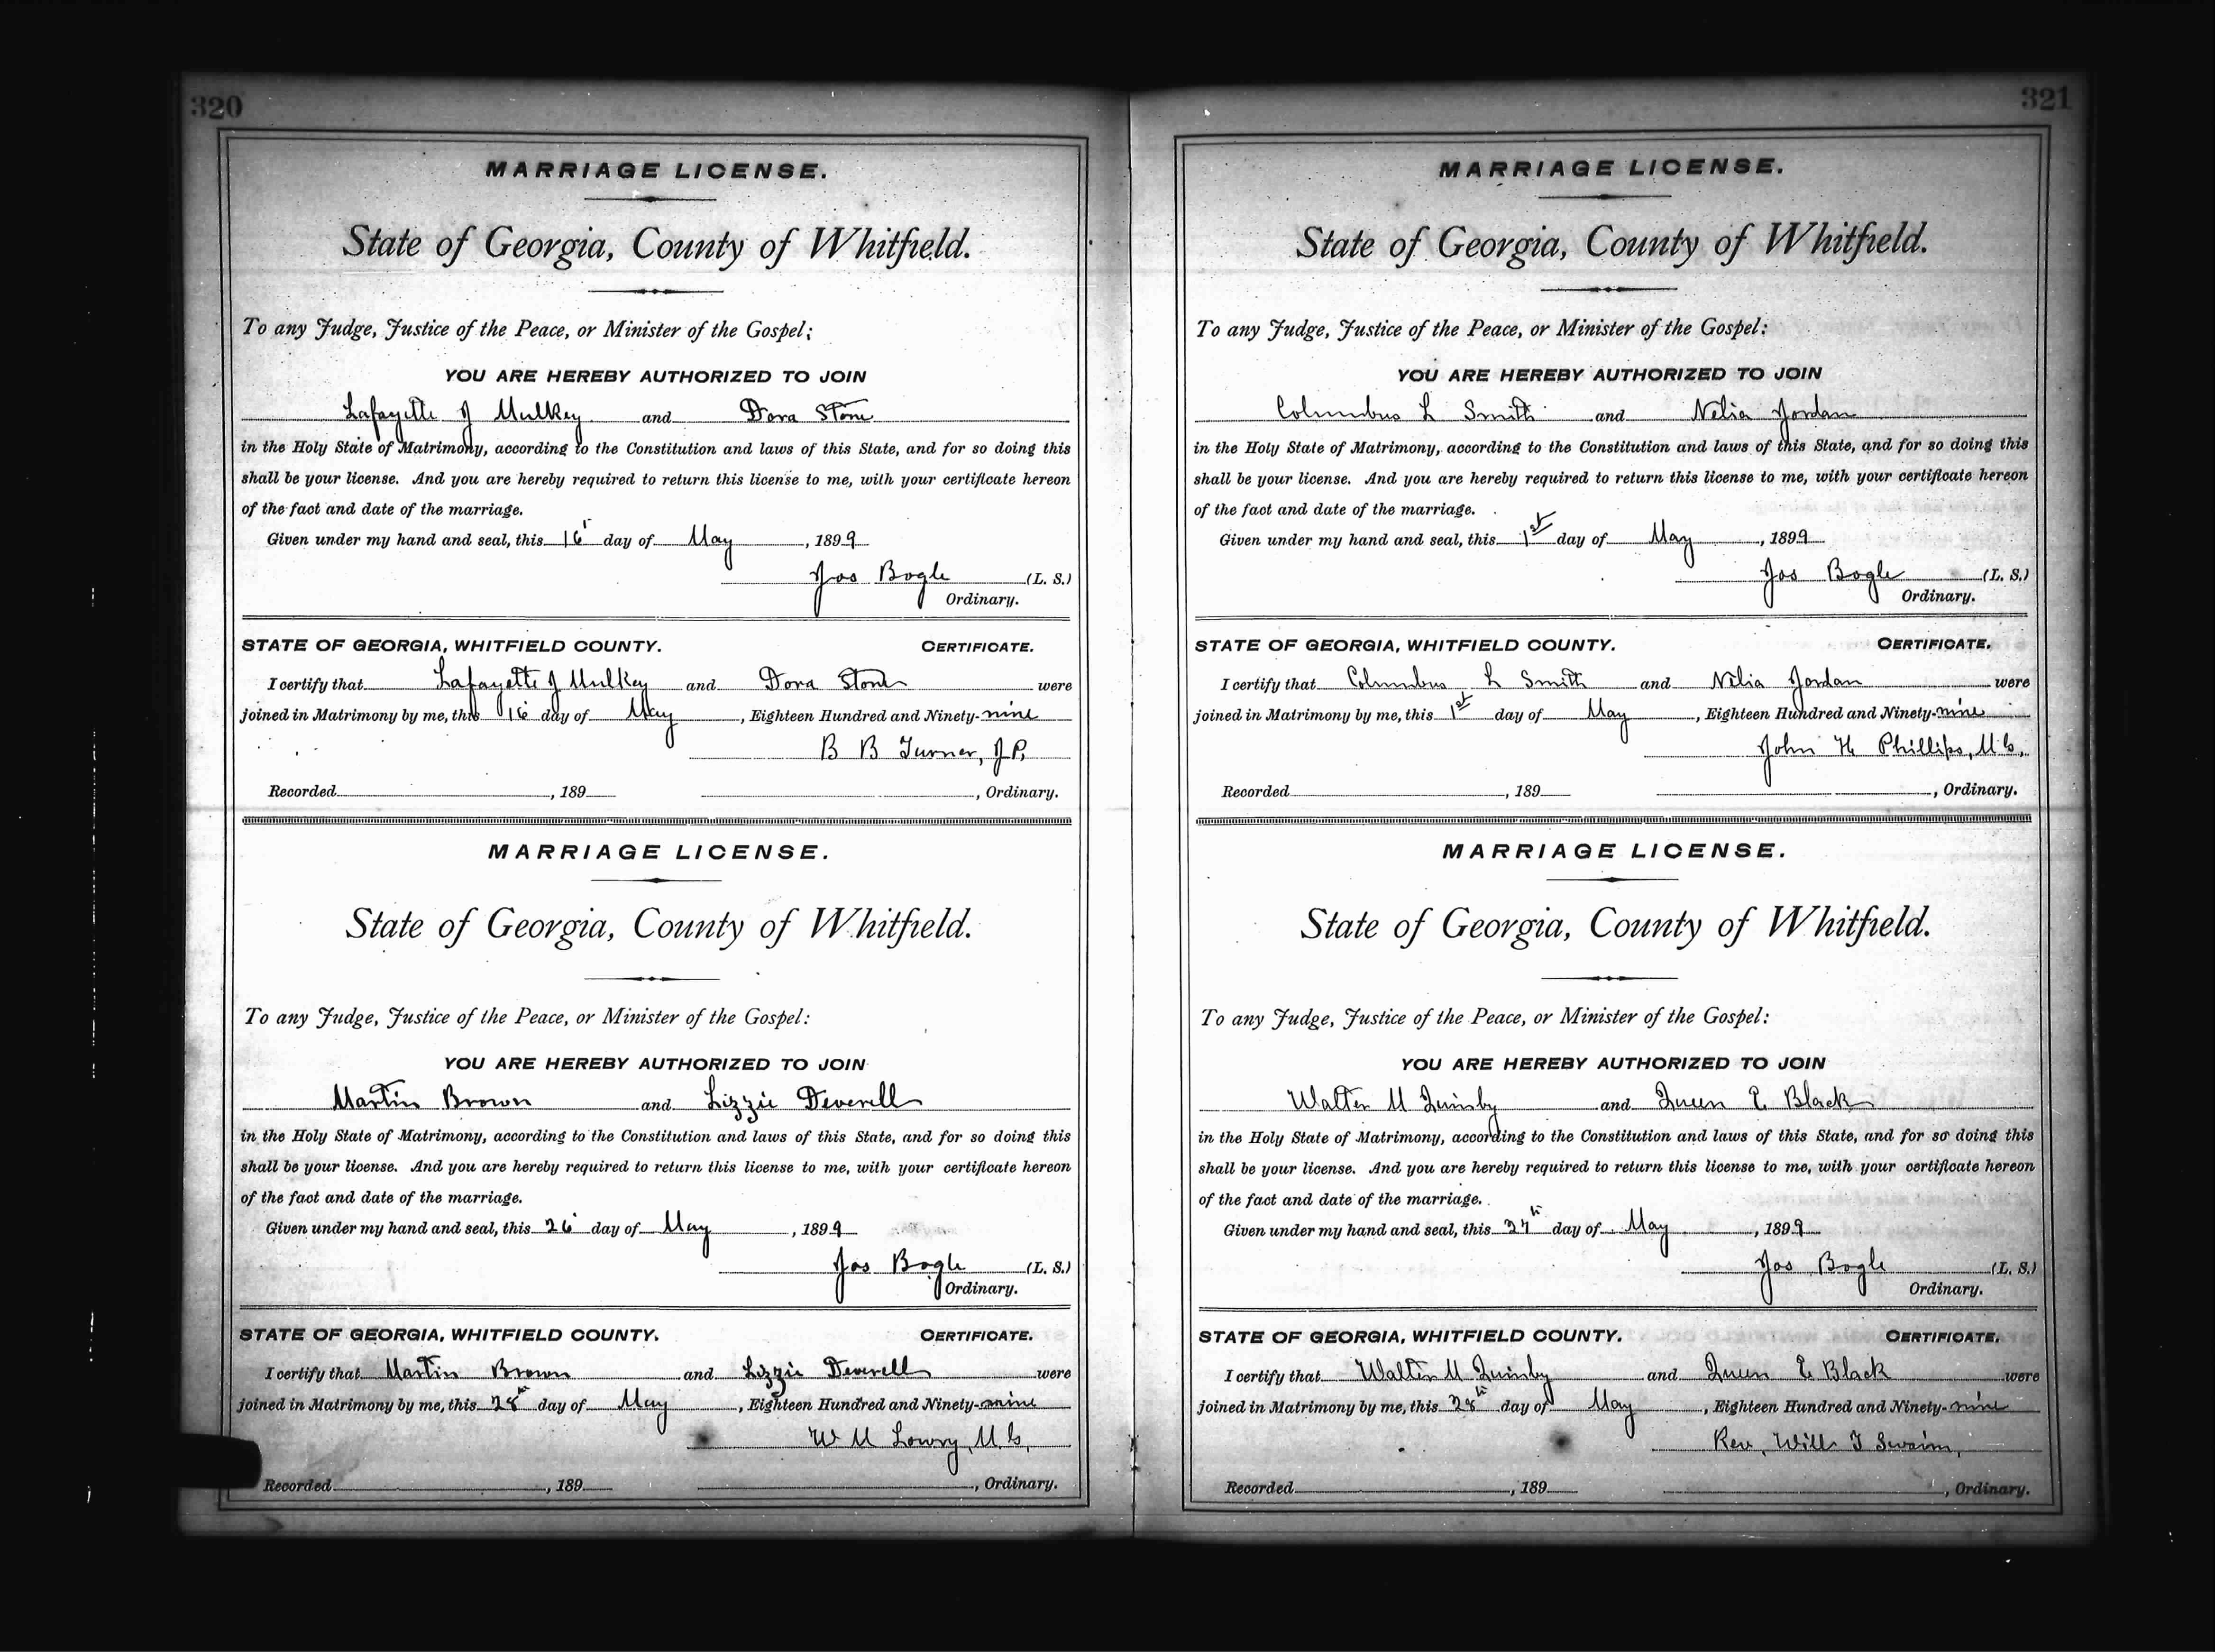 320
MARRIAGE LICENSE.
State of Georgia, County of Whitfield.
To any Judge, Justice of the Peace, or Minister of the Gospel:
YOU ARE HEREBY AUTHORIZED TO JOIN
Lafayette J Mulkey and Dora Stone
in the Holy State of Matrimony, according to the Constitution and laws of this State, and for so doing this
shall be your license. And you are hereby required to return this license to me, with your certificate hereon
of the fact and date of the marriage.
Given under my hand and seal, this 16 day of May, 1899
Jos Bogle (L. S.)
Ordinary.
STATE OF GEORGIA, WHITFIELD COUNTY. CERTIFICATE.
I certify that Lafayette J Mulkey and Dora Stone were
joined in Matrimony by me, this 16 day of May, Eighteen Hundred and Ninety-nine
B B Turner, J.P.
Recorded, 189 , Ordinary.
MARRIAGE LICENSE.
State of Georgia, County of Whitfield.
To any Judge, Justice of the Peace, or Minister of the Gospel:
YOU ARE HEREBY AUTHORIZED TO JOIN
Martin Brown and Lizzie Deverell
in the Holy State of Matrimony, according to the Constitution and laws of this State, and for so doing this
shall be your license. And you are hereby required to return this license to me, with your certificate hereon
of the fact and date of the marriage.
Given under my hand and seal, this 26 day of May, 1899
Jos Bogle (L. S.)
Ordinary.
STATE OF GEORGIA, WHITFIELD COUNTY. CERTIFICATE.
I certify that Martin Brown and Lizzie Deverell were
joined in Matrimony by me, this 28th day of May, Eighteen Hundred and Ninety-nine
W M Lowry, M.G.
Recorded, 189 , Ordinary.
321
MARRIAGE LICENSE.
State of Georgia, County of Whitfield.
To any Judge, Justice of the Peace, or Minister of the Gospel:
YOU ARE HEREBY AUTHORIZED TO JOIN
Columbus L Smith and Nelia Jordan
in the Holy State of Matrimony, according to the Constitution and laws of this State, and for so doing this
shall be your license. And you are hereby required to return this license to me, with your certificate hereon
of the fact and date of the marriage.
Given under my hand and seal, this 1st day of May, 1899
Jos Bogle (L. S.)
Ordinary.
STATE OF GEORGIA, WHITFIELD COUNTY. CERTIFICATE.
I certify that Columbus L Smith and Nelia Jordan were
joined in Matrimony by me, this 1st day of May, Eighteen Hundred and Ninety-nine
John H Phillips, M.G.
Recorded, 189 , Ordinary.
MARRIAGE LICENSE.
State of Georgia, County of Whitfield.
To any Judge, Justice of the Peace, or Minister of the Gospel:
YOU ARE HEREBY AUTHORIZED TO JOIN
Walter M Quinby and Queen E Black
in the Holy State of Matrimony, according to the Constitution and laws of this State, and for so doing this
shall be your license. And you are hereby required to return this license to me, with your certificate hereon
of the fact and date of the marriage.
Given under my hand and seal, this 27th day of May, 1899
Jos Bogle (L. S.)
Ordinary.
STATE OF GEORGIA, WHITFIELD COUNTY. CERTIFICATE.
I certify that Walter M Quinby and Queen E Black were
joined in Matrimony by me, this 28th day of May, Eighteen Hundred and Ninety-nine
Rev. Will T Swaim,
Recorded, 189 , Ordinary.